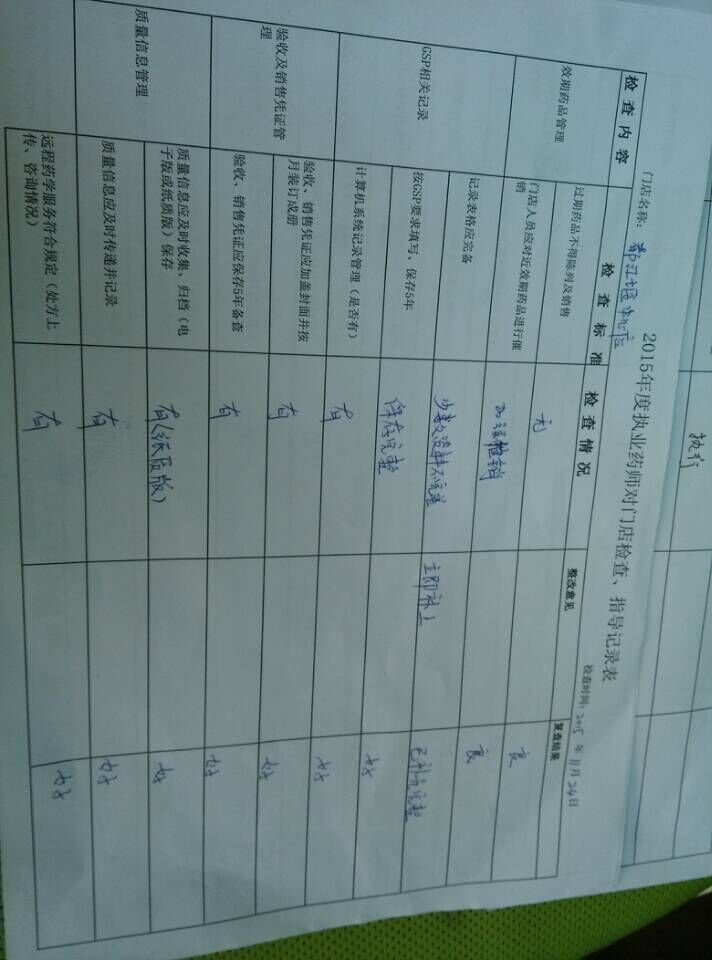 执行
2015年度执业药师对门店检查、指导记录表
门店名称: 中心店
检查时间: 2015年11月24日
检查内容 检查标准 检查情况 整改意见 复查结果
效期药品管理 过期药品不得陈列及销售 无 良
门店人员应对近效期药品进行催
销 加强推销 良
GSP相关记录 记录表格应完备 少数资料不完善 立即补上 已补齐完整
按GSP要求填写、保存5年 保存完整 好
计算机系统记录管理(是否有) 有 好
验收及销售凭证管
理 验收、销售凭证应加盖封面并按
月装订成册 有 好
验收、销售凭证应保存5年备查 有 好
质量信息管理 质量信息应及时收集、归档(电
子版或纸质版)保存 有(纸质版) 好
质量信息应及时传递并记录 有 好
远程药学服务符合规定(处方上
传、咨询情况) 有 好